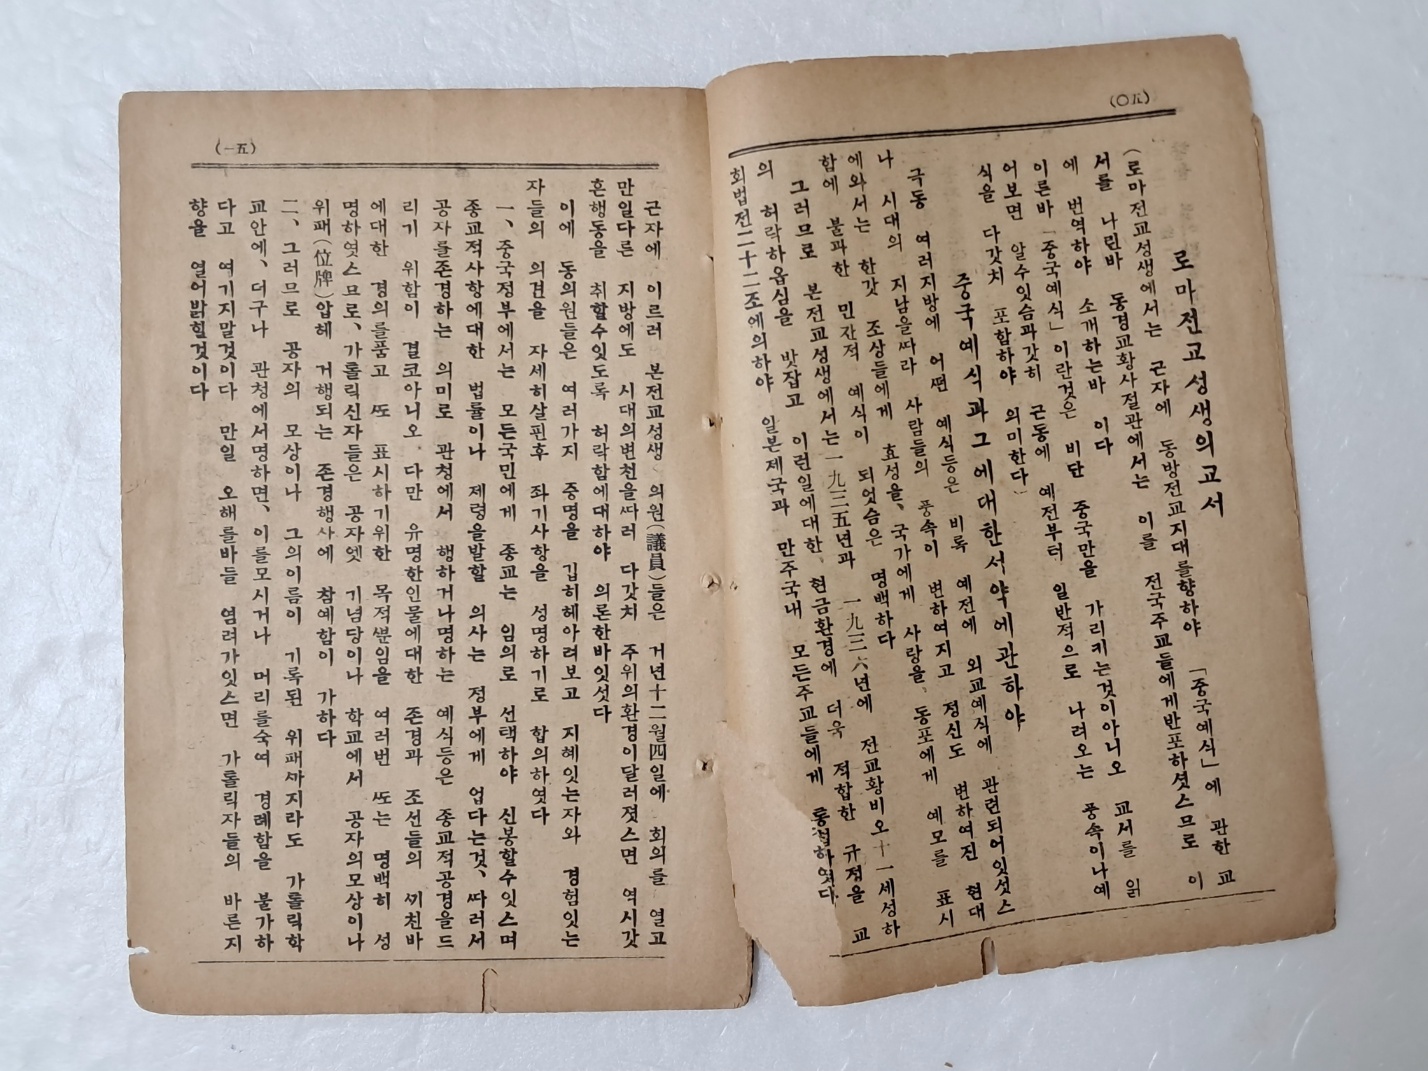 (五〇)
로마전교성생의교서
(로마전교성생에서는 근자에 동방전교지대를향하야 「중국예식」에 관한 교
서를 나린바 동경교황사절관에서는 이를 전국주교들에게반포하셧스므로 이
에 번역하야 소개하는바 이다
이른바「중국예식」이란것은 비단 중국만을 가리키는것이아니오 교서를 읽
어보면 알수잇슴과갓히 근동에 예전부터 일반적으로 나려오는 풍속이나예
식을 다갓치 포함하야 의미한다
중국예식과그에대한서약에관하야
극동 여러지방에 어떤 예식등은 비록 예전에 외교예식에 관련되어잇섯스
나 시대의 지남을따라 사람들의 풍속이 변하여지고 정신도 변하여진 현대
에와서는 한갓 조상들에게 효성을、국가에게 사랑을、동포에게 예모를 표시
함에 불과한 민간적 예식이 되엇슴은 명백하다
그러므로 본전교성생에서는一九三五년과 一九三六년에 전교황비오十一세성하
의 허락하옵심을 밧잡고 이런일에대한、현금환경에 더욱 적합한 규정을 교
회법전二十二조에의하야 일본제국과 만주국내 모든주교들에게 하엿다
(五一)
근자에 이르러 본전교성생、의원(議員)들은 거년十二월四일에 회의를 열고
만일다른 지방에도 시대의변천을따러 다갓치 주위의환경이달러젓스면 역시갓
흔행동을 취할수잇도록 허락함에대하야 의론한바잇섯다
이에 동의원들은 여러가지 증명을 깁히헤아려보고 지혜잇는자와 경험잇는
자들의 의견을 자세히살핀후 좌기사항을 성명하기로 합의하엿다
一、중국정부에서는 모든국민에게 종교는 임의로 선택하야 신봉할수잇스며
종교적사항에대한 법률이나 제령을발할 의사는 정부에게 업다는것、따러서
공자를존경하는 의미로 관청에서 행하거나명하는 예식등은 종교적공경을드
리기 위함이 결코아니오 다만 유명한인물에대한 존경과 조선들의 끼친바
에대한 경의를품고 또 표시하기위한 목적뿐임을 여러번 또는 명백히 성
명하엿스므로、가롤릭신자들은 공자엣 기념당이나 학교에서 공자의모상이나
위패(位牌)압헤 거행되는 존경행사에 참예함이 가하다
二、그러므로 공자의 모상이나 그의이름이 기록된 위패까지라도 가롤릭학
교안에、더구나 관청에서명하면、이를모시거나 머리를숙여 경례함을 불가하
다고 여기지말것이다 만일 오해를바들 염려가잇스면 가롤릭자들의 바른지
향을 열어밝힐것이다